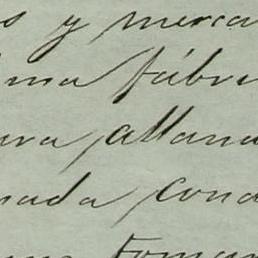 s y merca
una fábri
ara allana
nada cond